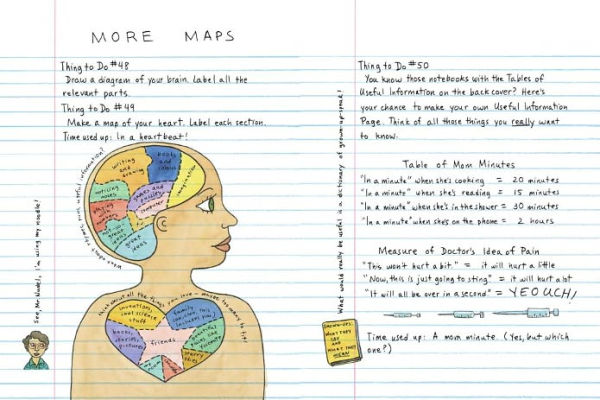 MORE MAPS
Thing to Do #48
Draw a diagram of your brain. Label all the
relevant parts.
Thing to Do #49
Make a map of your heart. Label each section.
Time used up: In a heartbeat!
writing
and
drawing
books
and
comics
imagination
noticing
noses
games and
puzzles
computer
playing
with
words
not-so-
great
ideas
great
ideas
useful information?
See, Mr.
I'm using my noodle!
think about all the things you love
inventions
and science
stuff
family
books,
stories,
pictures
friends
beautiful
places like
Yosemite
Thing to Do #50
You know those notebooks with the Tables of
Useful Information on the back cover? Here's
your chance to make your own Useful Information
Page. Think of all those things you really want
to know.
Table of Mom Minutes
"In a minute" when she's cooking = 20 minutes
"In a minute" when she's reading = 15 minutes
"In a minute" when she's in the shower = 30 minutes
"In a minute" when she's on the phone = 2 hours
Measure of Doctor's Idea of Pain
"This won't hurt a bit." = it will hurt a little
"Now, this is just going to sting" = it will hurt a lot
"It will all be over in a second" = YEOUCH!
Time used up: A mom minute. (Yes, but which
one?)
What would really be useful is a dictionary of grown-up-speak!
GROWN-UPS:
WHAT THEY
SAY
AND
WHAT THEY
MEAN